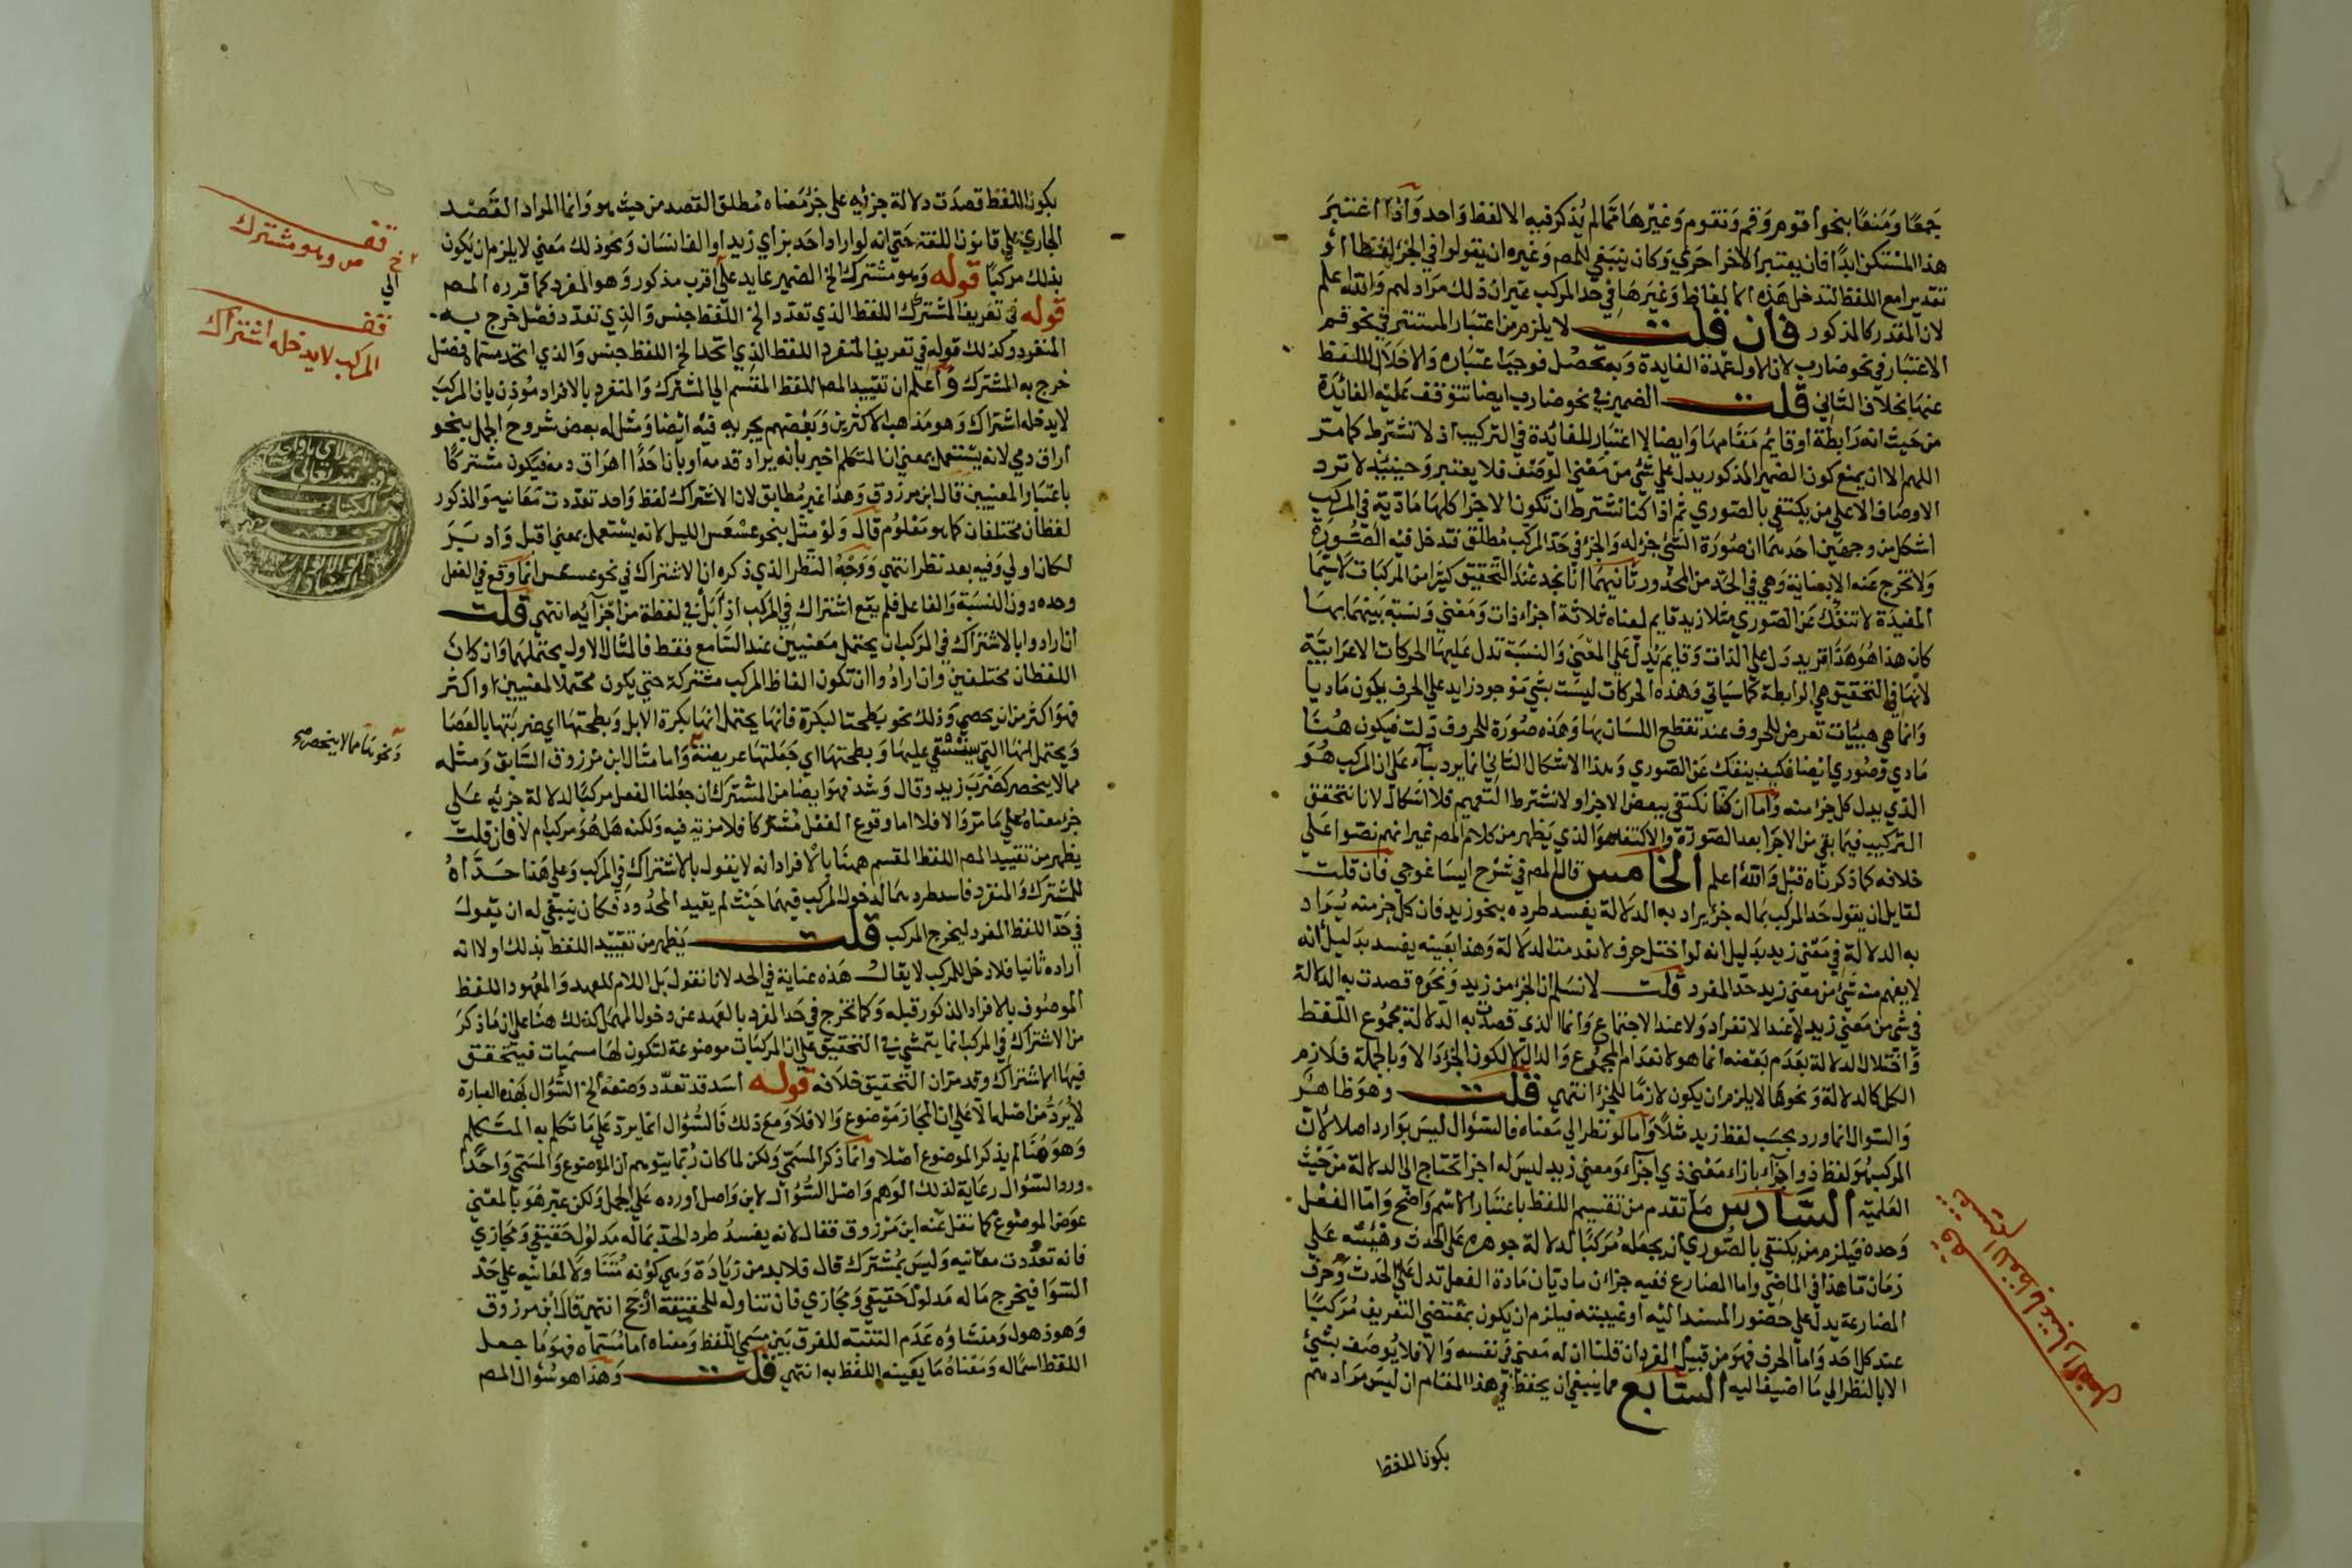 جمعا ومنعا بنحو أقوم وقم ونقوم وغيرها مما لم يذكر فيه الا لفظ واحد وآذا اعتبر
هذا المستكن ابدا فان يعتبر الآخر أحرى وكان ينبغي للمص وغيره ان يقولوا في الجزء لفظا أو
تقديرا مع اللفظ لتدخل هذه الالفاظ وغيرها في حد المركب غير ان ذلك مراد لهم والله اعلم
لان المقدر كالمذكور فان قلت لا يلزم من اعتبار المستتر في نحو قم
الاعتبار في نحو ضارب لان الاول عمدة الفايدة وبه تحصل فوجب اعتباره والا خلال اللفظ
عنها بخلاف الثاني قلت الضمير في نحو ضارب ايضا تتوقف عليه الفائدة
من حيث انه رابطة أو قايم مقامها وايضا لا اعتبار للفائدة في التركيب اذ لا تشترط كما مر
اللهم الا ان يمنع كون الضمير المذكور يدل على شئ من معنى الوصف فلا يعتبر وحينئذ لا ترد
الاوصاف الا على من يكتفي بالصوري ثم اذا كنا نشترط ان تكون الاجزا كلها مادية في المركب
اشكل من وجهين احدهما ان صورة الشئ جزء له والجزء في حد المركب مطلق فتدخل فيه الصورة
ولا تخرج عنه الا بعناية وهي في الحد من المحذور ثانيهما انا نجد عند التحقيق كثيرا من المركبات لا سيما
المفيدة لا تنفك عن الصوري مثلا زيد قايم لمعناه ثلاثة اجزاء ذات ومعنى ونسبة بينهما بها
كان هذا هو هذا فزيد دل على الذات وقايم يدل على المعنى والنسبة تدل عليها الحركات الاعرابية
لانها في التحقيق هي الرابطة كما سياتي وهذه الحركات ليست بشئ موجود زايد على الحرف يكون ماديا
وانما هي هيئات تعرض للحروف عند تقطع اللسان بها وهذه صورة للحروف دلت فيكون هنا
مادي وصوري ايضا فكيف ينفك عن الصوري وهذا الاشكال الثاني انما يرد بناء على ان المركب هو
الذي يدل كل جزء منه وآما ان كنا نكتفي ببعض الاجزا ولا نشترط التعميم فلا اشكال لانا نتحقق
التركيب فيما بقي من الاجزا بعد الصورة والاكتفاء هو الذي يظهر من كلام المص غير انهم نصوا على
خلافه كما ذكرناه قبل والله أعلم الخامس قال المص في شرح ايساغوجي فان قلت
لقايل ان يقول حد المركب بماله جزء يراد به الدلالة يفسد طرده بنحو زيد فان كل جزء منه يراد
به الدلالة في معنى زيد بدليل انه لو اختل حرف لانعدمت الدلالة وهذا بعينه يفسد بدليل انه
لا يفهم منه شئ من معنى زيد حد المفرد قلت لا نسلم ان الجزء من زيد ونحوه قصدت به الدلالة
في شئ من معنى زيد لا عند الانفراد ولا عند الاجتماع وانما الذي قصدت به الدلالة مجموع اللفظ
واختلال الدلالة بعدم بعضه انما هو لانعدام المجموع لا لكون الجزء دالا وبالجملة فلازم
الكل كالدلالة ونحوها لا يلزم ان يكون لازما للجزء انتهى قلت وهو ظاهر
والسوال انما ورد بحسب لفظ زيد مثلا وآما لو نظر الى معناه فالسؤال ليس بوارد اصلا لان
المركب هو لفظ ذو اجزاء بازاء معنى ذي اجزاء ومعنى زيد ليس له اجزا تحتاج الى الدلالة من حيث
العلمية السادس ما تقدم من تقسيم اللفظ باعتبار الاسم واضح واما الفعل
وحده فيلزم من يكتفي بالصوري ان يجعله مركبا لدلالة جوهره على الحدث وهيئته على
زمان ما هذا في الماضي واما المضارع ففيه جزءان ماديان مادة الفعل تدل على الحدث وحرف
المضارعة يدل على حضور المسند اليه أو غيبته فيلزم ان يكون بمقتضى التعريف مركبا
عند كل احد واما الحرف فهو من قبيل المفرد ان قلنا ان له معنى في نفسه والا فلا يوصف بشئ
الا بالنظر الى ما اضيف اليه السابع مما ينبغي ان يحفظ في هذا المقام ان ليس مرادهم
بكون اللفظ
قف على تقسيم اللفظ باعتبار الفعل
يكون اللفظ قصدت دلالة جزئيه على جزء معناه مطلق القصد من حيث هو وانما المراد القصد
الجاري على قانون اللغة حتى انه لو اراد احد بزاي زيد او الفا انسان ونحو ذلك معنى لا يلزم ان يكون
بذلك مركبا قوله وهو مشترك الخ الضمير عايد على اقرب مذكور وهو المفرد كما قرره المص
قوله في تعريف المشترك اللفظ الذي تعدد الخ اللفظ جنس والذي تعدد فصل خرج به
المنفرد وكذلك قوله في تعريف المنفرد اللفظ الذي اتحد الخ اللفظ جنس والذي اتحد مسماه فصل
خرج به المشترك وآعلم ان تقييد المص اللفظ المقسم الى المشترك والمنفرد بالافراد مؤذن بان المركب
لا يدخله اشتراك وهو مذهب الاكثرين وبعضهم يجريه فيه ايضا ومثل له بعض شروح الجمل بنحو
اراق دمي لانه يستعمل بمعنى ان المتكلم اخبر بأنه يراد قدمه أو بان احدا اهراق دمه فيكون مشتركا
باعتبار المعنيين قال ابن مرزوق وهذا غير مطابق لان الاشتراك لفظ واحد تعددت معانيه والمذكور
لفظان مختلفان كما هو معلوم قال ولو مثل بنحو عسعس الليل لانه يستعمل بمعنى اقبل وادبر
لكان اولى وفيه بعد نظر انتهى ووجه النظر الذي ذكره ان الاشتراك في نحو عسعس انما وقع في الفعل
وحده دون النسبة والفاعل فلم يقع اشتراك في المركب اذا بل في لفظة من اجزآيه انتهى قلت
ان ارادوا بالاشتراك في المركب ان يحتمل معنيين عند السامع فقط فالمثال الاول يحتملهما وان كان
اللفظان مختلفين وان ارادوا ان تكون الفاظ المركب مشتركة حتى يكون محتملا لمعنيين او اكثر
فهو اكثر من ان يحصى وذلك نحو بطحت البكرة فانها يحتمل انها بكرة الابل وبطحتها اي ضربتها بالعصا
ويحتمل انها التي يستقى عليها وبطحتها اي جعلتها عريضة وأما مثال ابن مرزوق السابق ومثله
مما لا ينحصر كضرب زيد وقال وشد فهو ايضا من المشترك ان جعلنا الفعل مركبا لدلالة جزئيه على
جزء معناه على ما مر والا فلا اما وقوع الفعل مشتركا فلا مزية فيه ولكنه هل هو مركب ام لا فان قلت
يظهر من تقييد المص اللفظ المقسم همنا بالافراد انه لا يقول بالاشتراك في المركب وعلى هذا حداه
للمشترك والمنفرد فاسد طردهما لدخول المركب فيهما حيث لم يقيد المحدود فكان ينبغي له ان يقول
في حد اللفظ المفرد ليخرج المركب قلت يظهر من تقييد اللفظ بذلك اولا انه
أراده ثانيا فلا دخل للمركب لا يقال هذه عناية في الحد لانا نقول بل اللام للعهد والمعهود اللفظ
الموصوف بالافراد المذكور قبله وكما تخرج في حد المفرد بالعهد عن دخول المهمل كذلك هنا على ان ما ذكر
من الاشتراك في المركب انما يتمشى في التحقيق على ان المركبات موضوعة لتكون لها مسميات فيتحقق
فيها الاشتراك وقد مر ان التحقيق خلافه قوله اسد قد تعدد وصفه الخ السؤال بهذه العبارة
لا يرد من اصله الا على ان المجاز موضوع والا فلا ومع ذلك فالسؤال انما يرد على ما تكلم به المتكلم
وهو هنا لم يذكر الموضوع اصلا وانما ذكر المسمى ولكن لما كان ربما يتوهم ان الموضوع والمسمى واحدا
ورد السؤال رعاية لذلك الوهم واصل السؤال لابن واصل أورده على الجمل ولكن عبر هو بالمعنى
عوض الموضوع كما نقل عنه ابن مرزوق فقال لانه يفسد طرد الحد بماله مدلول حقيقي ومجازي
فانه تعددت معانيه وليس بمشترك قال فلا بد من زيادة وهي كونه متناولا لمعانيه على حد
السوا فيخرج ما له مدلول حقيقي ومجازي فان تناوله للحقيقة ارجح انتهى قال ابن مرزوق
وهو ذهول ومنشاؤه عدم التفته للفرق بين مسمى اللفظ ومعناه اما مسماه فهو ما جعل
اللفظ اسما له ومعناه ما يعينه اللفظ به انتهى قلت وهذا هو سؤال المص
قف
ص وهو مشترك
الخ
الى
قف
المركب لا يدخله اشتراك
ونحوهما مما لا ينحصر صح